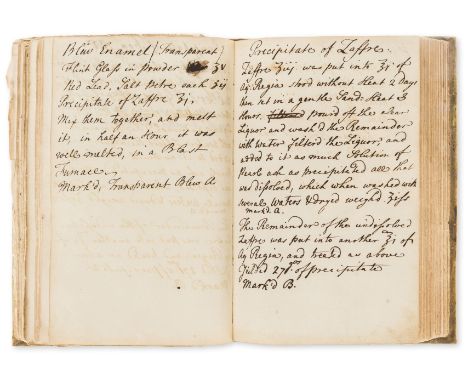 Blew Enamel (Transparent)
Flint Glass in Powder ℥v
Red Lead, Salt Petre each ℥ij
Precipitate of Zaffre ʒj,
Mix them together, and melt
it, in half an Hour it was
well melted, in a Blast
Furnace,
Mark'd, Transparent Blew A
Precipitate of Zaffre.
Zaffre was put into of
Aq Regia stood without Heat 2 Days
then set in a gentle Sand Heat
Hours, pour'd off the clear
Liquor and wash'd the Remainder
with Water filterd the Liquor, and
added to it as much Solution of
pearl ash as precipitated all that
was dissolved, which when washed with
several Waters & dryed weighd
markd A.
The Remainder of the undissolved
Zaffre was put into another of
Aq Regia, and treated as above
of precipitate
Mark'd B.